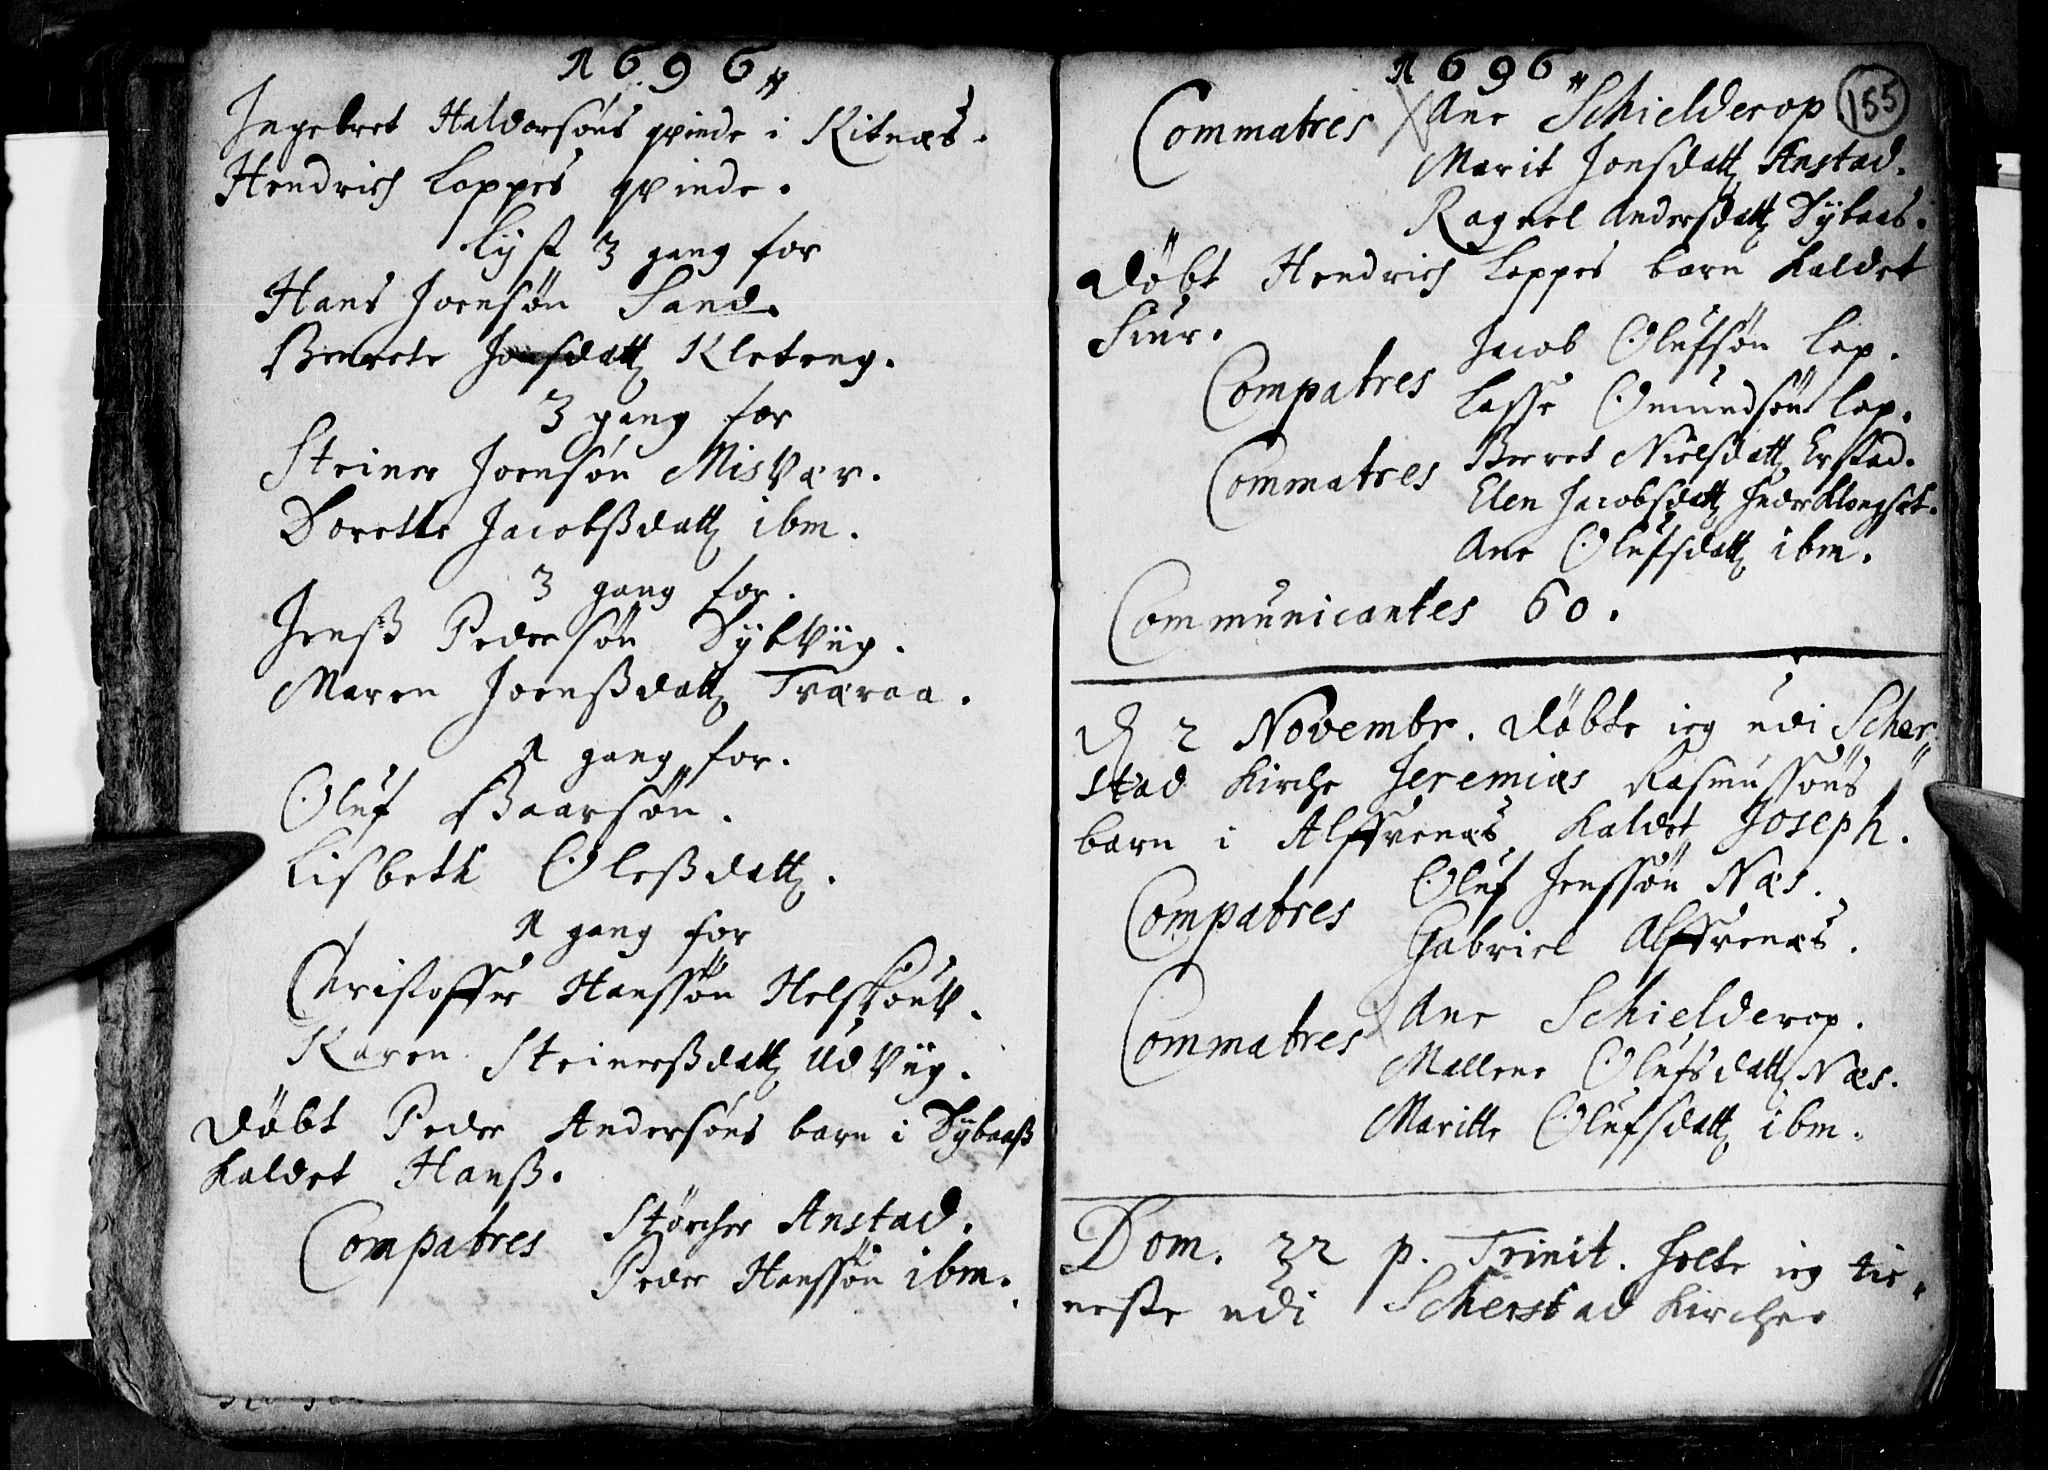 1696
Ingebret Haldorsøns qvinde i Kitnæs.
Hendrich Loppes qvinde.
Lyst 3 gang for
Hans Joensøn Sand.
Berrete Jonsdatt Kleteng.
3 gang for
Steiner Joensøn Misvær.
Dorethe Jacobsßdatt ibm.
3 gang for.
Jenß Pedersøn Dybviig.
Maren Joenßdatt Tværaa.
1 gang for.
Oluf Baarsøn.
Lisbeth Oleßdatt.
1 gang for
Christoffer Hanssøn
Karen Steinerßdatt Udviig.
Døbt Peder Andersøns barn i Dybaaß
kaldet Hanß.
Compatres Størcher Anstad.
Peder Hanssøn ibm.
1696
155
Commatres Ane Schielderop.
Marit Jonsdatt Anstad.
Ragnel Andersdatt Dybaas.
Døbt Hendrich Loppes barn kaldet
Siur.
Compatres Jacob Olufsøn Lop.
Lasse Omundsøn Lop.
Commatres Berret Nielsdatt Erstad.
Elen Jacobsdatt Indre Klongset.
Ane Olufsdatt ibm.
Communicantes 60.
D 2 Novembr. døbte ieg udi Scher-
stad Kirche Jeremias Rasmussøns
barn i Alffvenæs kaldet Joseph.
Compatres Oluf Jenssøn Næs.
Gabriel Alffvenæs.
Commatres Ane Schielderop.
Mallene Olufsdatt Næs.
Maritte Olufsdatt ibm.
Dom. 22 p. Trinit. holte ieg tie-
neste udi Scherstad Kircher